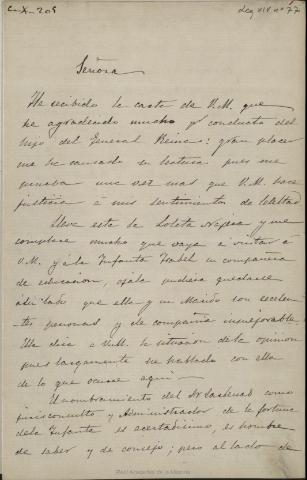 Ca-X-205
Leg XIV nº 77
Señora
He recibido la carta de V.M. que
he agradecido mucho pr conducta del
hijo del General Reina: gran placer
me ha causado su lectura pues me
una vez mas que V.M. hace
justicia á mis sentimientos de lealtad
Lleva esta la Loleta y me
complace mucho que vaya á visitar á
V.M. y á la Infanta Isabel en compañia
de educacion, ojala pudiera quedarse
á su lado que ella y su Marido son excelen-
tes personas y de compañia inmejorable.
Ella dirá á V.M. la situacion de la opinion
pues largamente he hablado con ella
de lo que ocurre aqui
El nombramiento del Sr como
jurisconsulto y Administrador de la fortuna
de la Infanta es acertadisimo, es hombre
de saber y de consejo; pero al lado de
Real Academia de la Historia